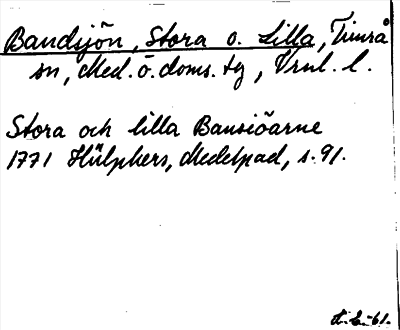 Bandsjön, Stora o. Lilla, Timrå
sn, Med. ö. doms. tg, Vrnl. l.
Stora och lilla Bansiöarne
1771 Hülphers, Medelpad, s. 91.